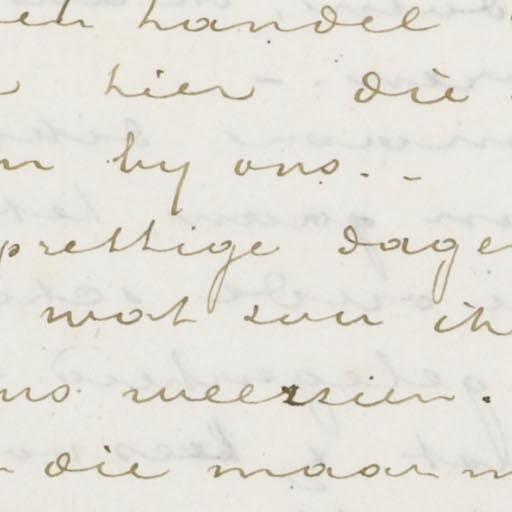 en handel
hier die
by ons. -
prettige dagen
wat zou ik
ons weerzien.
die maar